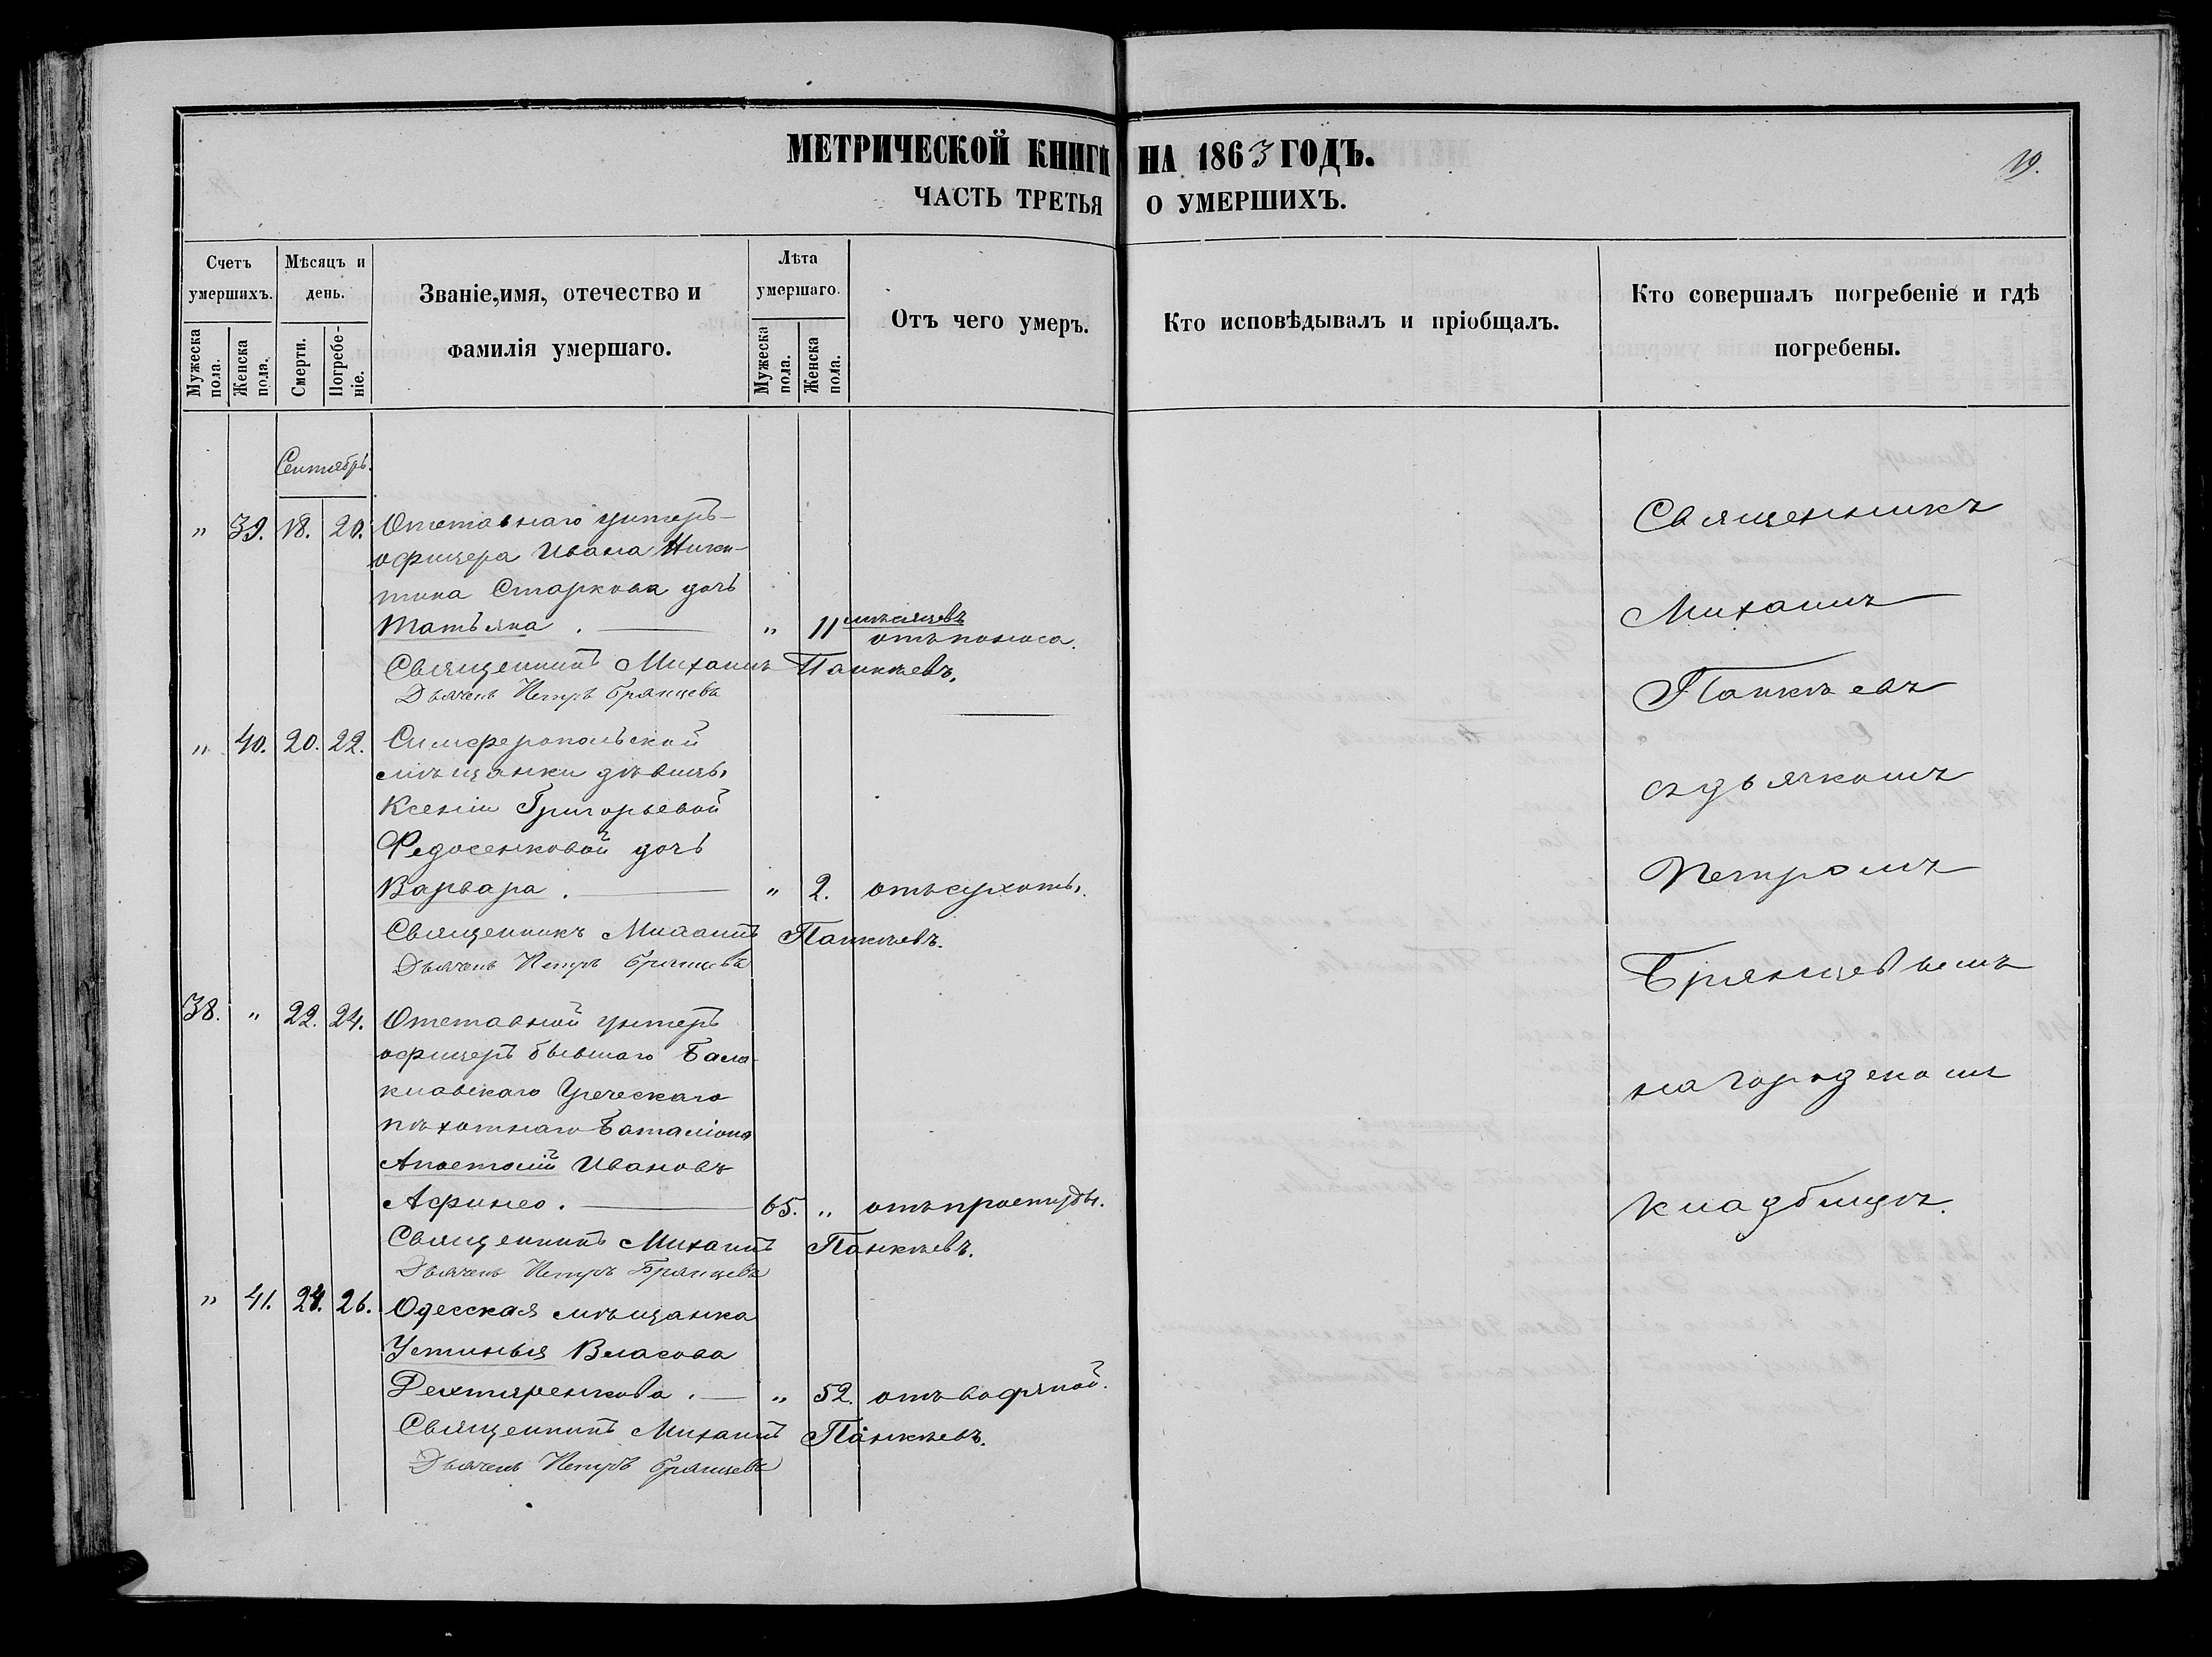 МЕТРИЧЕСКОЙ КНИГИ НА 1863 ГОДЪ.
19.
ЧАСТЬ ТРЕТЬЯ О УМЕРШИХЪ.
Счетъ умершихъ.
Мужеска пола.
Женска пола.
Мѣсяцъ и день.
Смерти.
Погребеніе.
Званіе, имя, отечество и фамилія умершаго.
Лѣта умершаго.
Мужеска пола.
Женска пола.
Отъ чего умеръ.
Кто исповѣдывалъ и пріобщалъ.
Кто совершалъ погребеніе и гдѣ погребены.
Сентябрь.
" 39. 18. 20. Отставнаго унтеръ-
офицера Ивана Ники-
тина Старкова дочь
Татьяна. " 11 мѣсяцевъ
отъ поноса.
Священникъ Михаилъ Панкѣевъ.
Дьячекъ Петръ Брянцевъ
" 40. 20. 22. Симферопольской
мѣщанки дѣвицы
Ксеніи Григорьевой
Федосенковой дочь
Варвара. " 2. отъ сухоты.
Священникъ Михаилъ Панкѣевъ.
Дьячекъ Петръ Брянцевъ
38. " 22. 24. Отставной унтеръ
офицеръ бывшаго Бала-
клавскаго Греческаго
пѣхотнаго Баталіона
Апостолій Ивановъ
Афинео. 65. " отъ простуды.
Священникъ Михаилъ Панкѣевъ.
Дьячекъ Петръ Брянцевъ
" 41. 24. 26. Одесская мѣщанка
Устинья Власова
Дехтяренкова. " 52. отъ водяной.
Священникъ Михаилъ Панкѣевъ.
Дьячекъ Петръ Брянцевъ
Священникъ
Михаилъ
Панкѣевъ
съ дьячкомъ
Петромъ
Брянцевымъ
на городскомъ
кладбищѣ.